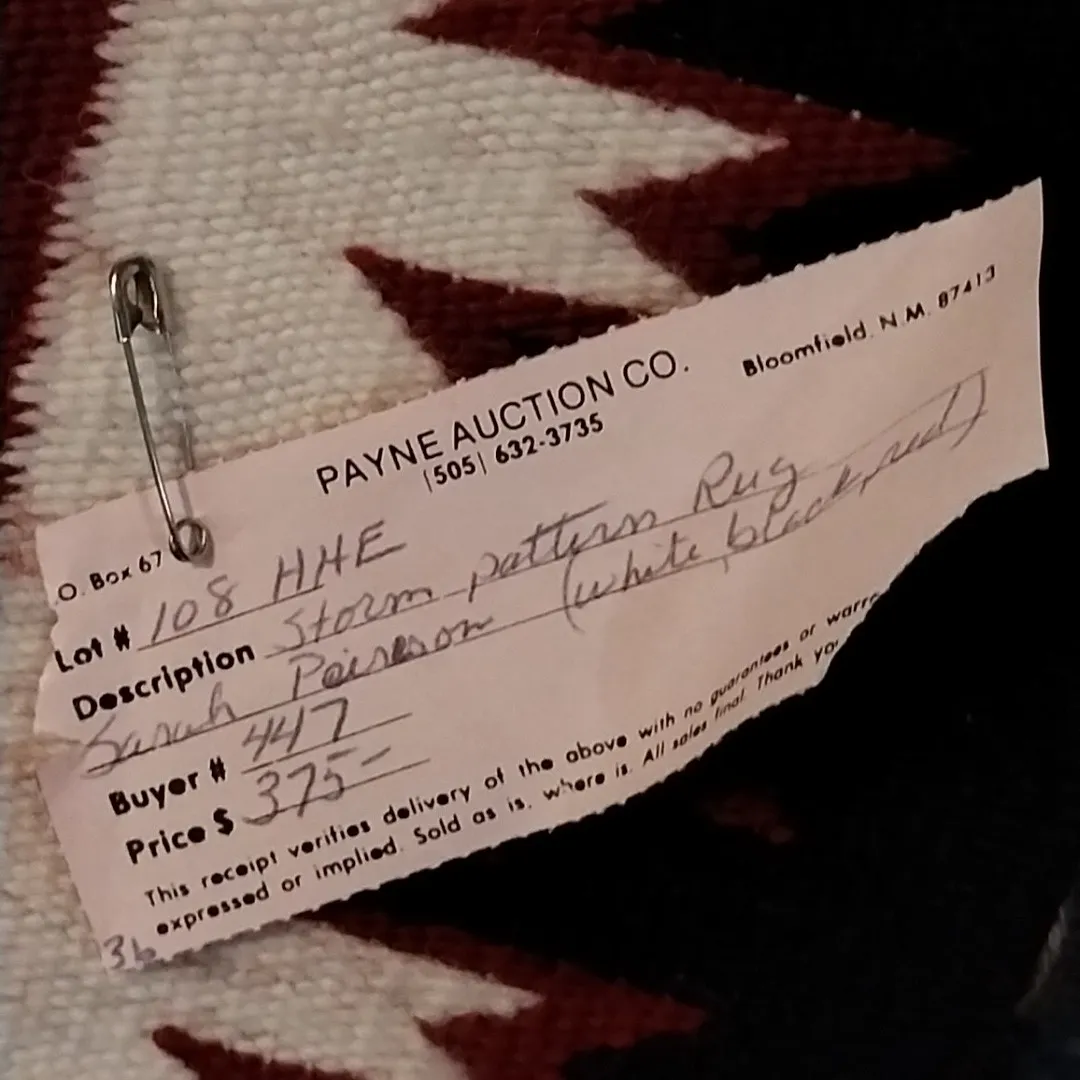 PAYNE AUCTION CO.
.O. Box 67
(505) 632-3735
Bloomfield, N.M. 87413
Lot # 108 HHE
Description Storm pattern Rug
Sarah (white, black, red)
Buyer # 447
Price $ 375-
This receipt verifies delivery of the above with no guarantees or warr
expressed or implied. Sold as is, where is. All sales final. Thank yo